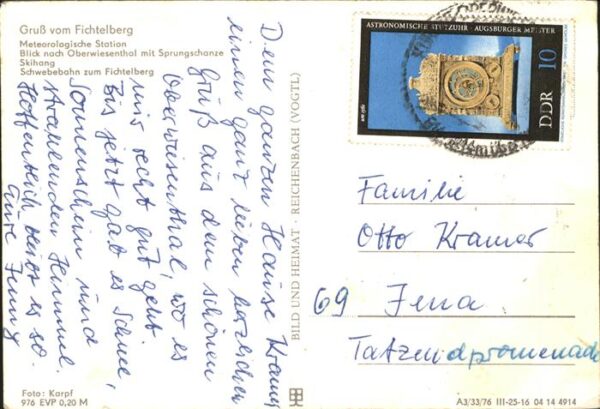 Gruß vom Fichtelberg
Meteorologische Station
Blick nach Oberwiesenthal mit Sprungschanze
Skihang
Schwebebahn zum Fichtelberg
Dem ganzen Hause Kramer
einen ganz lieben herzlichen
Gruß aus dem schönen
Oberwiesenthal, wo es
mir recht gut geht.
Bis jetzt gab es Schnee,
Sonnenschein und
strahlenden Himmel.
Hoffentlich bleibt es so.
Eure Jenny
Foto: Karpf
976 EVP 0,20 M
BILD UND HEIMAT · REICHENBACH (VOGTL)
ASTRONOMISCHE STUTZUHR · AUGSBURGER MEISTER
um 1560
DDR 10
Familie
Otto Kramer
69 Jena
Tatzendpromenade
A3/33/76 III-25-16 04 14 4914